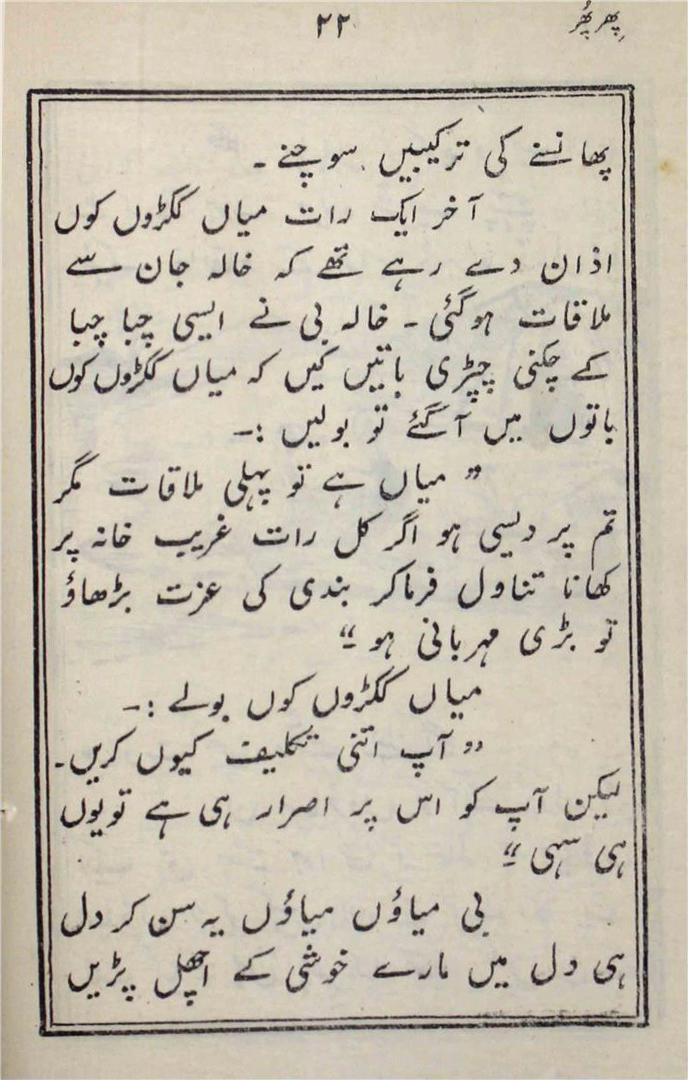 پِھر پُھر
۲۲
پھانسنے کی ترکیبیں سوچنے ۔
آخر ایک رات میاں ککڑوں کوں
اذان دے رہے تھے کہ خالہ جان سے
ملاقات ہوگئی ۔ خالہ بی نے ایسی چبا چبا
کے چکنی چپڑی باتیں کیں کہ میاں ککڑوں کوں
باتوں میں آگئے تو بولیں :۔
" میاں ہے تو پہلی ملاقات مگر
تم پردیسی ہو اگر کل رات غریب خانہ پر
کھانا تناول فرماکر بندی کی عزت بڑھاؤ
تو بڑی مہربانی ہو "
میاں ککڑوں کوں بولے :۔
" آپ اتنی تکلیف کیوں کریں۔
لیکن آپ کو اس پر اصرار ہی ہے تویوں
ہی سہی "
بی میاؤں میاؤں یہ سن کر دل
ہی دل میں مارے خوشی کے اچھل پڑیں